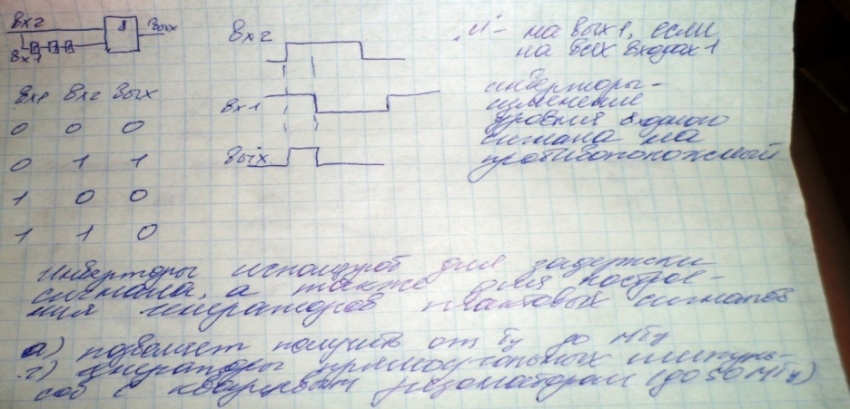 Вх2 8 Вых
Вх1
Вх1 Вх2 Вых
0 0 0
0 1 1
1 0 0
1 1 0
Вх2
Вх1
Вых
"И" - на вых 1, если
на всех входах 1
инверторы -
изменение
уровня входного
сигнала на
противоположный
Инверторы использ для задержки
сигнала, а также для построе-
ния генераторов тактовых сигналов
а) позволяет получить от Гц до МГц
г) генераторы прямоугольных импуль-
сов с кварцевым резонатором (до 50 МГц)